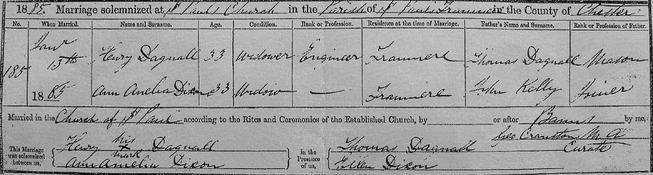 1885. Marriage solemnized at St Paul's Church in the Parish of St Paul Tranmere in the County of Chester
No. When Married. Name and Surname. Age. Condition. Rank or Profession. Residence at the time of Marriage. Father's Name and Surname. Rank or Profession of Father.
185 Jany 13th 1885 Henry Dagnall 33 Widower Engineer Tranmere Thomas Dagnall Mason
Ann Amelia Dixon 33 Widow — Tranmere John Kelly Joiner
Married in the Church of St Paul according to the Rites and Ceremonies of the Established Church, by or after Banns by me,
Geo Cranston M.A
Curate
This Marriage was solemnized between us, Henry his x mark Dagnall
Ann Amelia Dixon
in the Presence of us, Thomas Dagnall
Ellen Dixon